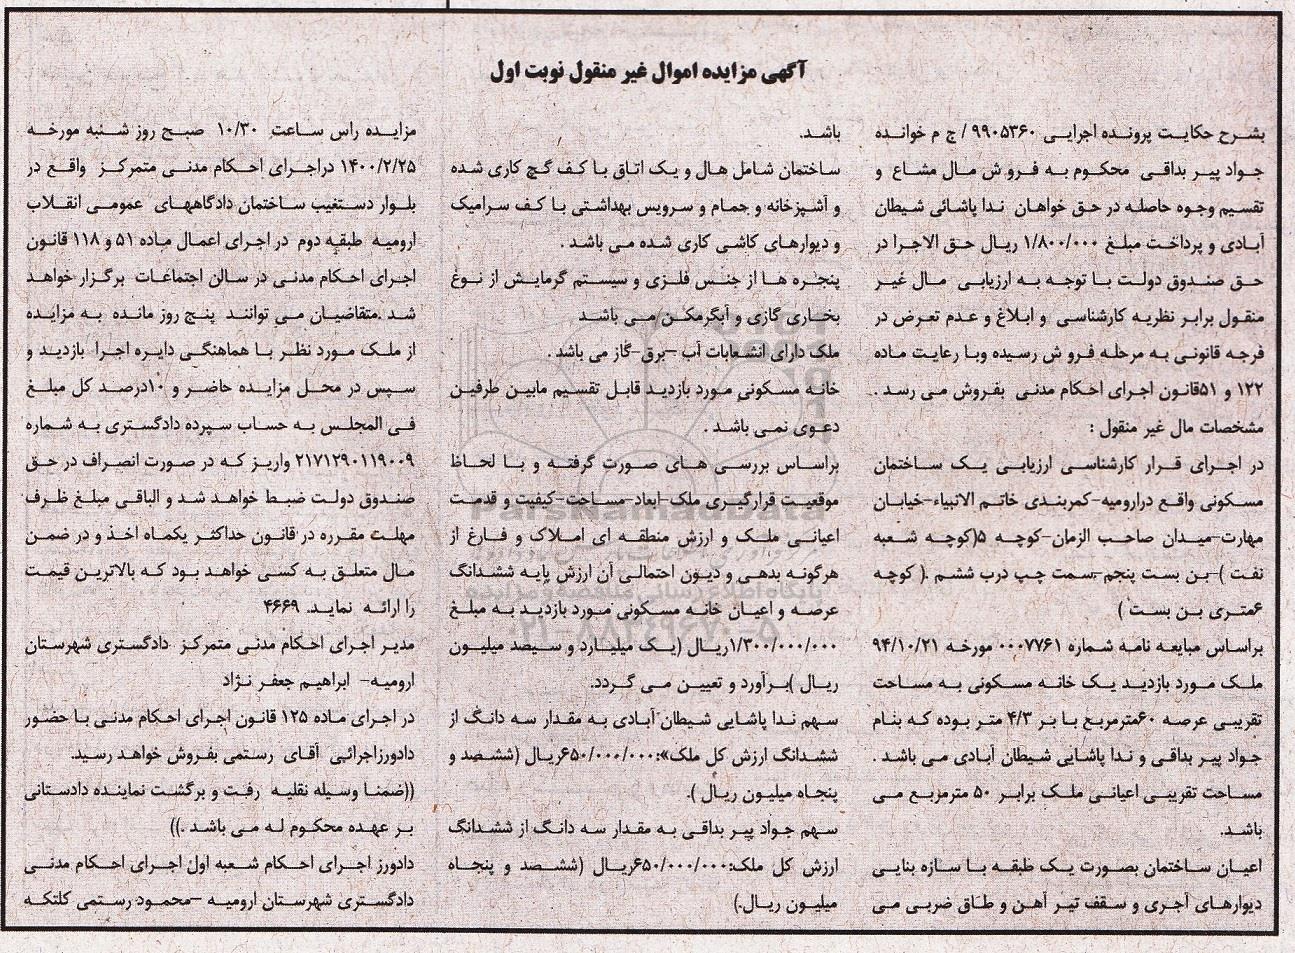 آگهی مزایده اموال غیر منقول نوبت اول
بشرح حکایت پرونده اجرایی ۹۹۰۵۳۶۰ / ج م خوانده
جواد پیر بداقی محکوم به فرو ش مال مشاع و
تقسیم وجوه حاصله در حق خواهان ندا پاشائی شیطان
آبادی و پرداخت مبلغ ۱/۸۰۰/۰۰۰ ریال حق الاجرا در
حق صندوق دولت با توجه به ارزیابی مال غیر
منقول برابر نظریه کارشناسی و ابلاغ و عدم تعرض در
فرجه قانونی به مرحله فرو ش رسیده وبا رعایت ماده
۱۲۲ و ۵۱قانون اجرای احکام مدنی بفروش می رسد .
مشخصات مال غیر منقول :
در اجرای قرار کارشناسی ارزیابی یک ساختمان
مسکونی واقع درارومیه-کمربندی خاتم الانبیاء-خیابان
مهارت-میدان صاحب الزمان-کوچه ۵(کوچه شعبه
نفت )-بن بست پنجم-سمت چپ درب ششم .( کوچه
۶متری بن بست )
براساس مبایعه نامه شماره ۰۰۰۷۷۶۱ مورخه ۹۴/۱۰/۲۱
ملک مورد بازدید یک خانه مسکونی به مساحت
تقریبی عرصه ۶۰مترمربع با بر ۴/۳ متر بوده که بنام
جواد پیر بداقی و ندا پاشایی شیطان آبادی می باشد .
مساحت تقریبی اعیانی ملک برابر ۵۰ مترمربع می
باشد.
اعیان ساختمان بصورت یک طبقه با سازه بنایی
دیوارهای آجری و سقف تیر آهن و طاق ضربی می
باشد.
ساختمان شامل هال و یک اتاق با کف گچ کاری شده
و آشپزخانه و حمام و سرویس بهداشتی با کف سرامیک
و دیوارهای کاشی کاری شده می باشد .
پنجره ها از جنس فلزی و سیستم گرمایش از نوع
بخاری گازی و آبگرمکن می باشد
ملک دارای انشعابات آب -برق-گاز می باشد .
خانه مسکونی مورد بازدید قابل تقسیم مابین طرفین
دعوی نمی باشد .
براساس بررسی های صورت گرفته و با لحاظ
موقعیت قرارگیری ملک-ابعاد-مساحت-کیفیت و قدمت
اعیانی ملک و ارزش منطقه ای املاک و فارغ از
هرگونه بدهی و دیون احتمالی آن ارزش پایه ششدانگ
عرصه و اعیان خانه مسکونی مورد بازدید به مبلغ
۱/۳۰۰/۰۰۰/۰۰۰ریال (یک میلیارد و سیصد میلیون
ریال )برآورد و تعیین می گردد.
سهم ندا پاشایی شیطان آبادی به مقدار سه دانگ از
ششدانگ ارزش کل ملک»:۶۵۰/۰۰۰/۰۰۰ریال (ششصد و
پنجاه میلیون ریال ).
سهم جواد پیر بداقی به مقدار سه دانگ از ششدانگ
ارزش کل ملک:۶۵۰/۰۰۰/۰۰۰ریال (ششصد و پنجاه
میلیون ریال.)
مزایده راس ساعت ۱۰/۳۰ صبح روز شنبه مورخه
۱۴۰۰/۲/۲۵ دراجرای احکام مدنی متمرکز واقع در
بلوار دستغیب ساختمان دادگاههای عمومی انقلاب
ارومیه طبقه دوم در اجرای اعمال ماده ۵۱ و ۱۱۸ قانون
اجرای احکام مدنی در سالن اجتماعات برگزار خواهد
شد .متقاضیان می توانند پنج روز مانده به مزایده
از ملک مورد نظر با هماهنگی دایره اجرا بازدید و
سپس در محل مزایده حاضر و ۱۰درصد کل مبلغ
فی المجلس به حساب سپرده دادگستری به شماره
۲۱۷۱۲۹۰۱۱۹۰۰۹ واریز که در صورت انصراف در حق
صندوق دولت ضبط خواهد شد و الباقی مبلغ ظرف
مهلت مقرره در قانون حداکثر یکماه اخذ و در ضمن
مال متعلق به کسی خواهد بود که بالاترین قیمت
را ارائه نماید. ۴۶۶۹
مدیر اجرای احکام مدنی متمرکز دادگستری شهرستان
ارومیه- ابراهیم جعفر نژاد
در اجرای ماده ۱۲۵ قانون اجرای احکام مدنی با حضور
دادورزاجرائی آقای رستمی بفروش خواهد رسید.
((ضمنا وسیله نقلیه رفت و برگشت نماینده دادستانی
بر عهده محکوم له می باشد .))
دادورز اجرای احکام شعبه اول اجرای احکام مدنی
دادگستری شهرستان ارومیه -محمود رستمی کلتکه
ParsNamadData
پایگاه اطلاع رسانی مناقصه و مزایده
۰۲۱-۸۸۳۴۹۶۷۰-۵